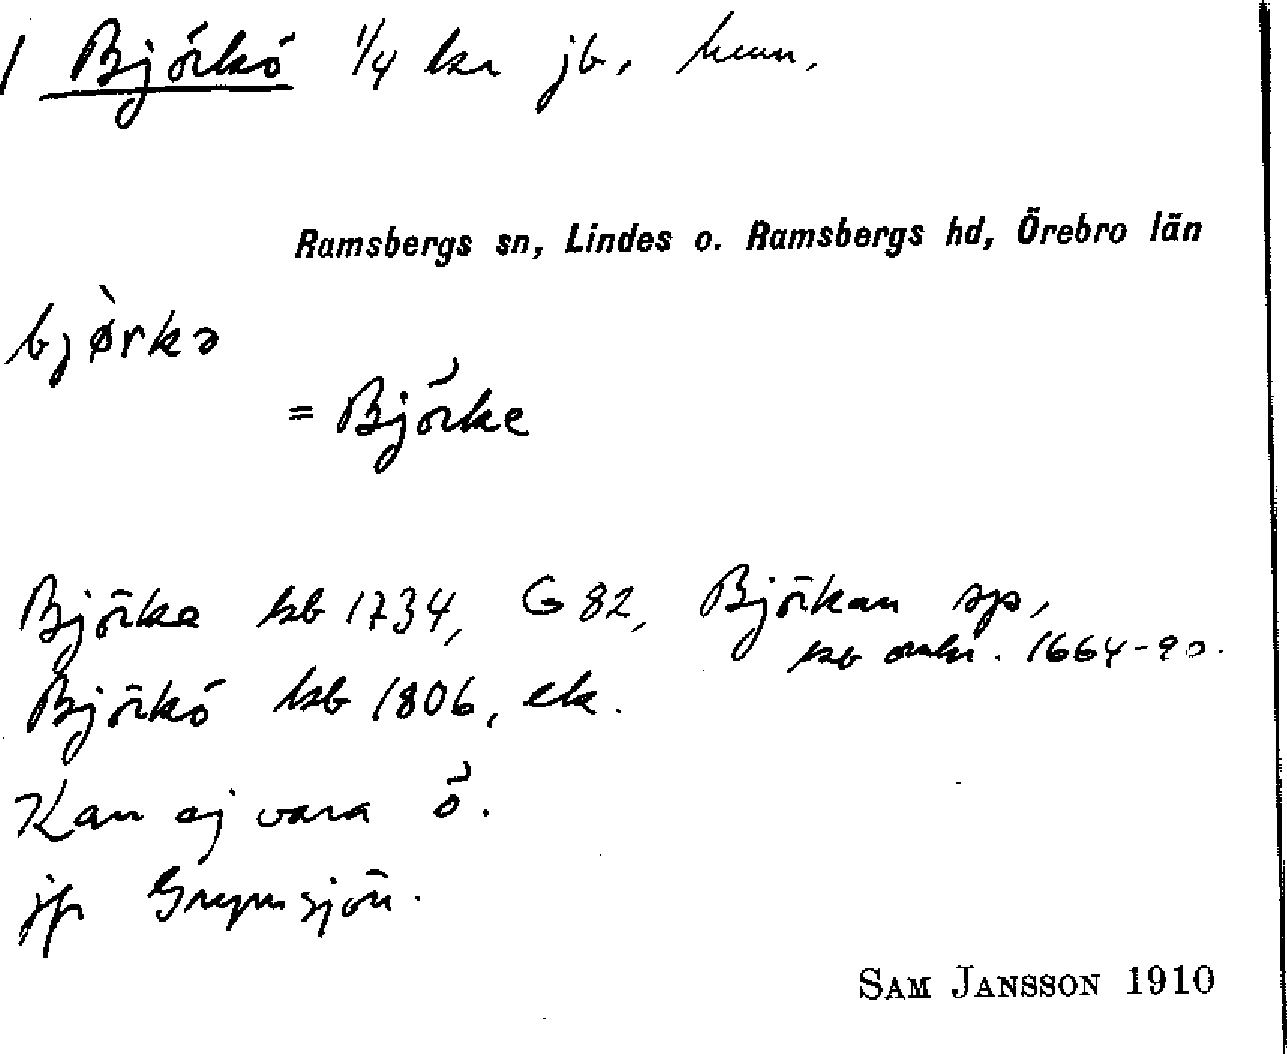 1 Björkö 1/4 kr jb, hmn,
Ramsbergs sn, Lindes o. Ramsbergs hd, Örebro län
bjørkə
= Björke
Björka kb 1734, G 82, Björkan sp,
kb omkr. 1664-90.
Björkö kb 1806, ek.
Kan ej vara ö.
jfr sjön.
SAM JANSSON 1910